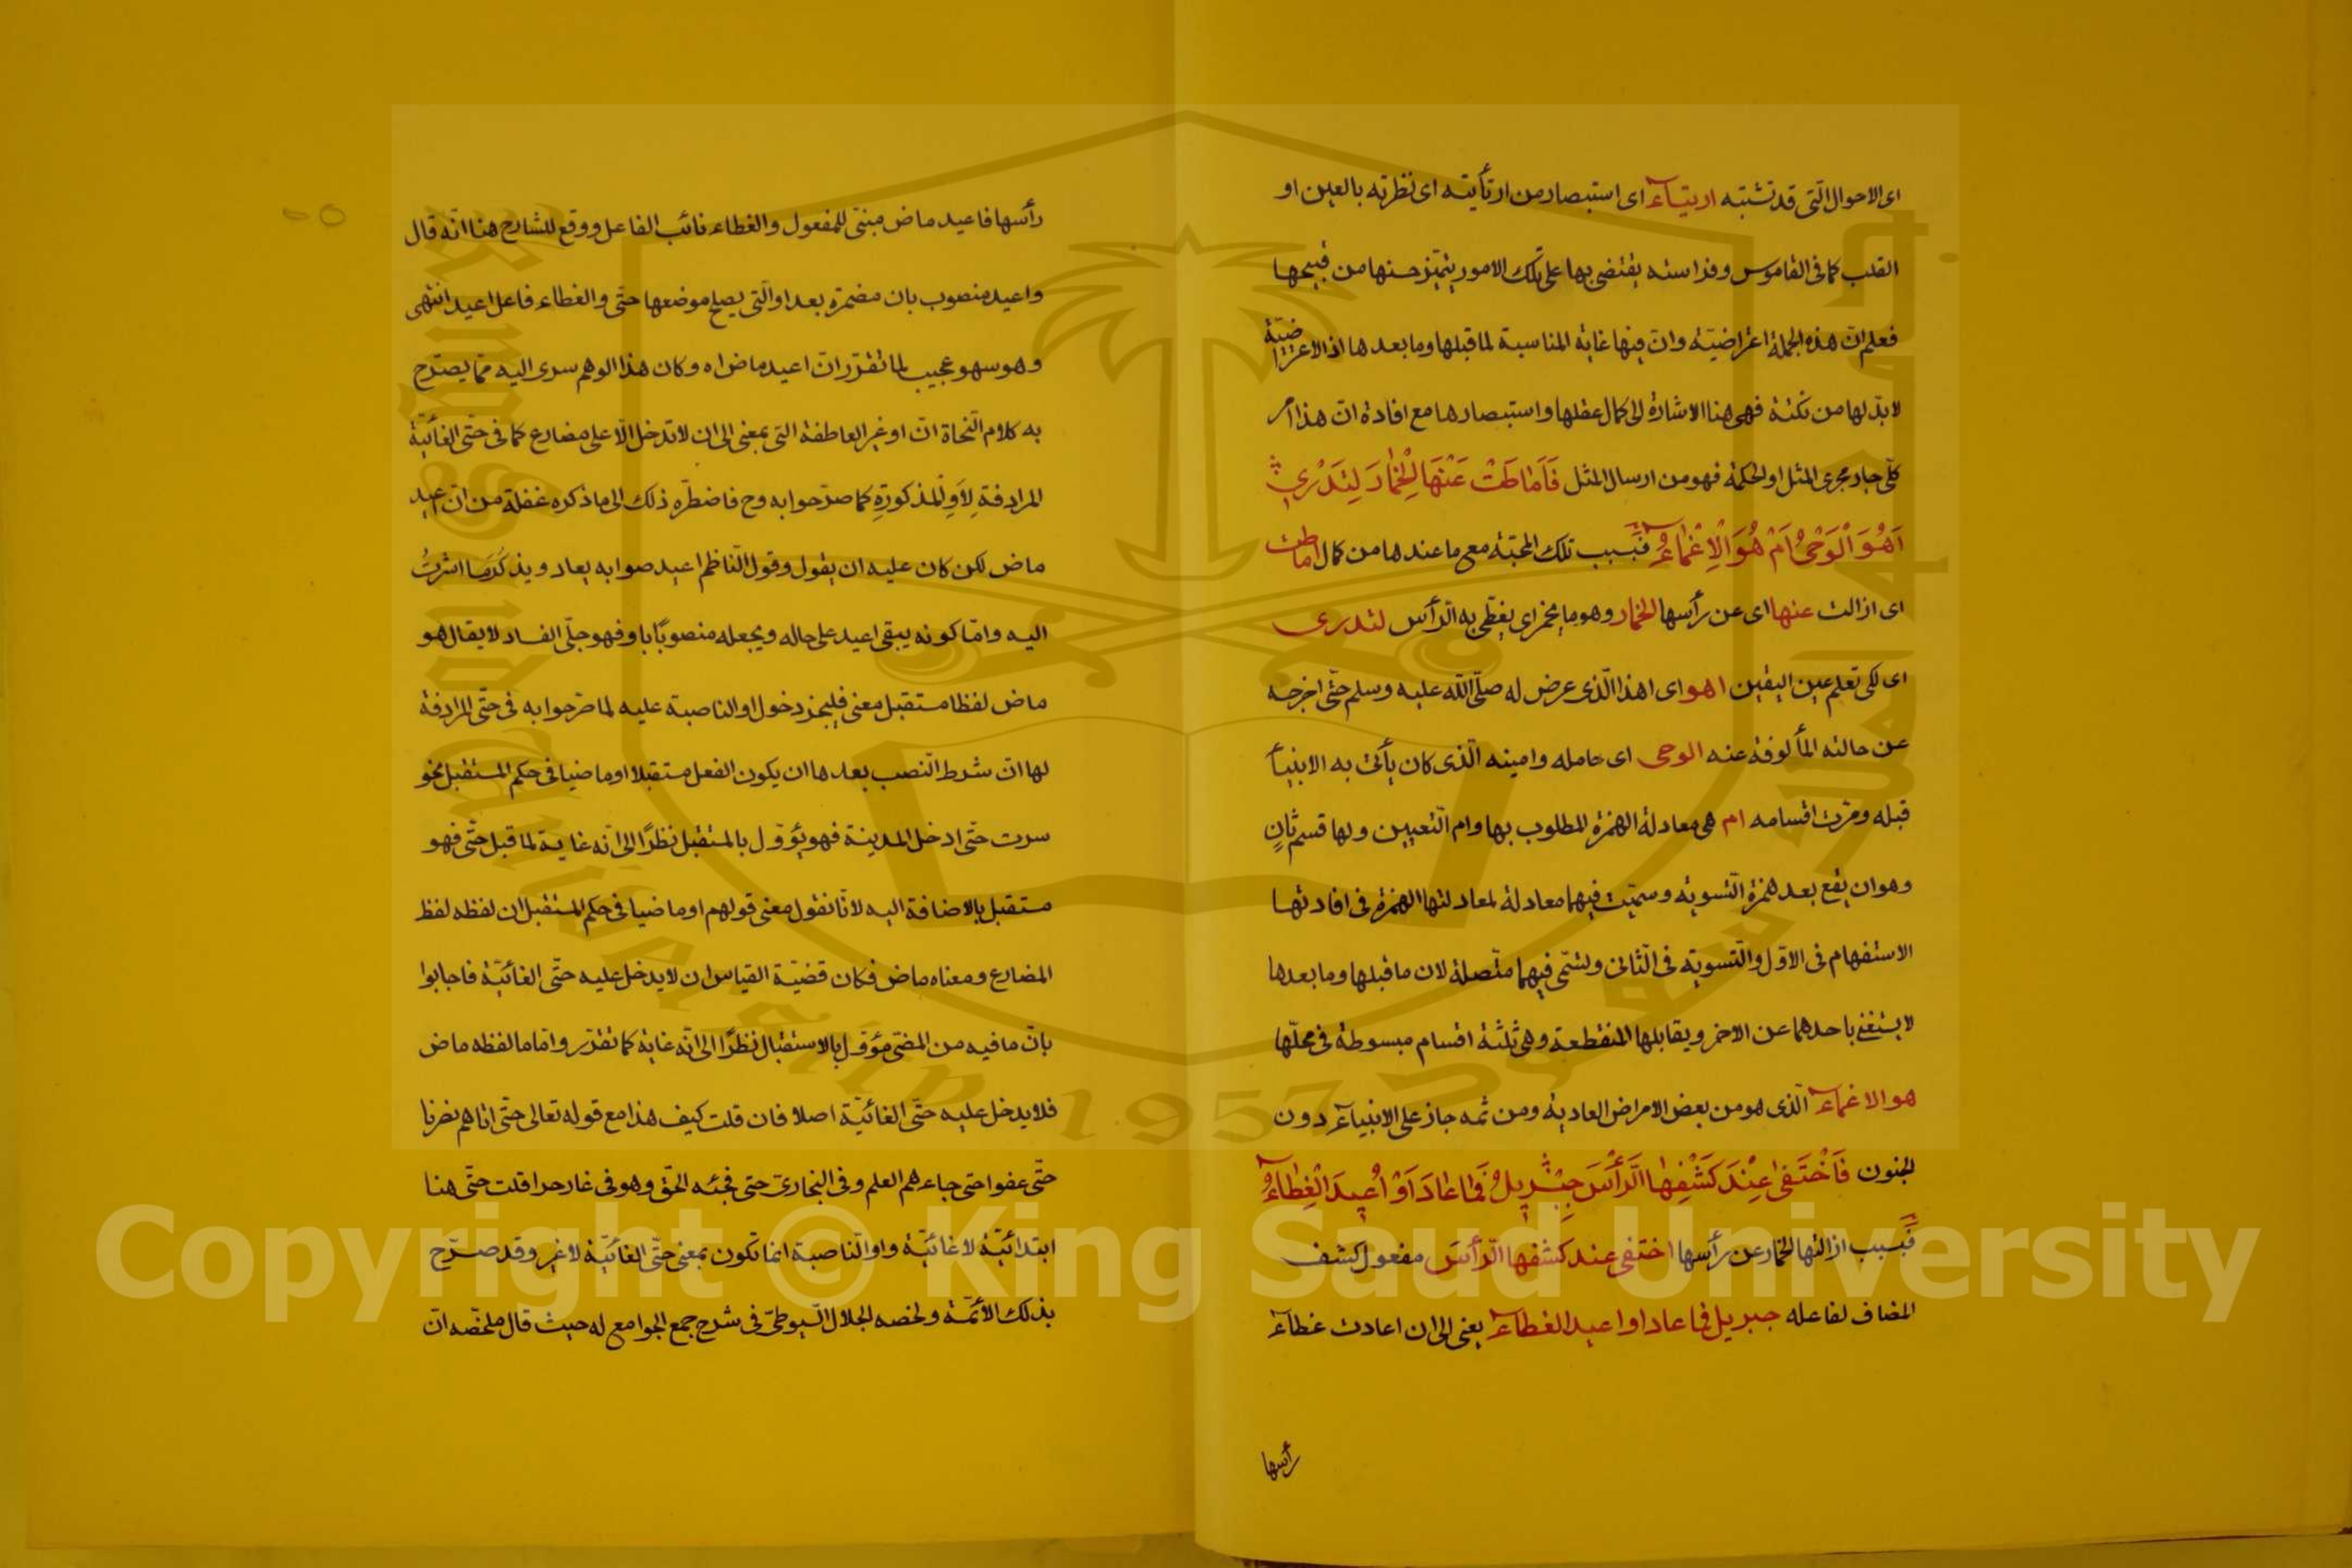 اى الاحوال الّتى قد تشتبه ارتيآء اى استبصار من ارتأيته اى نظرته بالعين او
القلب كما فى القاموس وفراسته يقتضى بها على تلك الامور يتميّز حسنها من قبيحها
فعلم انّ هذه الجملة اعتراضيّة وان فيها غاية المناسبة لما قبلها وما بعدها اذ الاعتراضيّة
لا بدّ لها من نكتة فهى هنا الاشارة الى كمال عقلها واستبصارها مع افادة انّ هذا امر
كلّى جار مجرى المثل او الحكمة فهو من ارسال المثل فَاَمَاطَتْ عَنْهَا الْخِمَارَ لِتَدْرِي
اَهُوَ الْوَحْىُ اَمْ هُوَ الْاِغْمَاءُ فبسبب تلك المحبّة مع ما عندها من كمال اماطت
اى ازالت عنها اى عن رأسها الخمار وهو ما يخمر اى يغطّى به الرّأس لتدرى
اى لكى تعلم عين اليقين اهو اى اهذا الّذى عرض له صلّى اللّه عليه وسلم حتّى اخرجه
عن حالته المألوفة عنه الوحى اى حامله وامينه الّذى كان يأتى به الانبيآ
قبله ومرّت اقسامه ام هى معادلة الهمزة المطلوب بها وام التّعيين ولها قسم ثانٍ
وهو ان يقع بعد همزة التّسوية وسمّيت فيهما معادلة لمعادلتها الهمزة فى افادتها
الاستفهام فى الاوّل والتّسوية فى الثّانى وتسمّى فيهما متّصلة لان ما قبلها وما بعدها
لا يستغنى باحدهما عن الاخر ويقابلها المنقطعة وهى ثلثة اقسام مبسوطة فى محلّها
هو الاغمآء الّذى هو من بعض الامراض العادية ومن ثمه جاز على الانبيآء دون
الجنون فَاخْتَفٰى عِنْدَ كَشْفِهَا الرَّأْسَ جِبْرِيلُ فَمَا عَادَ اَوْ اُعِيدَ الْغِطَاءُ
فبسبب ازالتها الخمار عن رأسها اختفى عند كشفها الرّأس مفعول كشف
المضاف لفاعله جبريل فما عاد او اعيد الغطآء يعنى الى ان اعادت غطآء
رأسها
رأسها فاعيد ماض مبنىّ للمفعول والغطاء نائب الفاعل ووقع للشّارح هنا انّه قال
واعيد منصوب بان مضمرة بعد او الّتى يصلح موضعها حتّى والغطاء فاعل اعيد انتهى
وهو سهو عجيب لما تقرّر انّ اعيد ماض اه وكان هذا الوهم سرى اليه ممّا يصرّح
به كلام النّحاة انّ او غير العاطفة التى بمعنى الى ان لا تدخل الّا على مضارع كما فى حتّى الغائيّة
المرادفة لِاَوِ المذكورة كما صرّحوا به وح فاضطرّه ذلك الى ما ذكره غفلة من انّ اعيد
ماض لكن كان عليه ان يقول وقول النّاظم اعيد صوابه يعاد ويذكر ما اشرتُ
اليه وامّا كونه يبقى اعيد على حاله ويجعله منصوبًا باو فهو جلّى الفساد لا يقال هو
ماض لفظا مستقبل معنى فليجز دخول او الناصبة عليه لما صرّحوا به فى حتّى المرادفة
لها انّ شرط النّصب بعدها ان يكون الفعل مستقبلا او ماضيا فى حكم المستقبل نحو
سرت حتّى ادخل المدينة فهو يؤوّل بالمستقبل نظرًا الى انّه غاية لما قبل حتّى فهو
مستقبل بالاضافة اليه لانّا نقول معنى قولهم او ماضيا فى حكم المستقبل ان لفظه لفظ
المضارع ومعناه ماض فكان قضيّة القياس ان لا يدخل عليه حتّى الغائيّة فاجابوا
بانّ ما فيه من المضىّ مؤوّل بالاستقبال نظرًا الى انّه غاية كما تقرّر وامّا ما لفظه ماض
فلا يدخل عليه حتّى الغائيّة اصلا فان قلت كيف هذا مع قوله تعالى حتّى اتاهم نصرنا
حتّى عفوا حتى جاءهم العلم وفى البخارىّ حتى فجئه الحقّ وهو فى غار حرا قلت حتّى هنا
ابتدائيّة لا غائيّة واو النّاصبة انما تكون بمعنى حتّى الغائيّة لا غير وقد صرّح
بذلك الأئمّة ولخصه الجلال السّيوطىّ فى شرح جمع الجوامع له حيث قال ملخّصه انّ
King Saud University
1957
Copyright © King Saud University